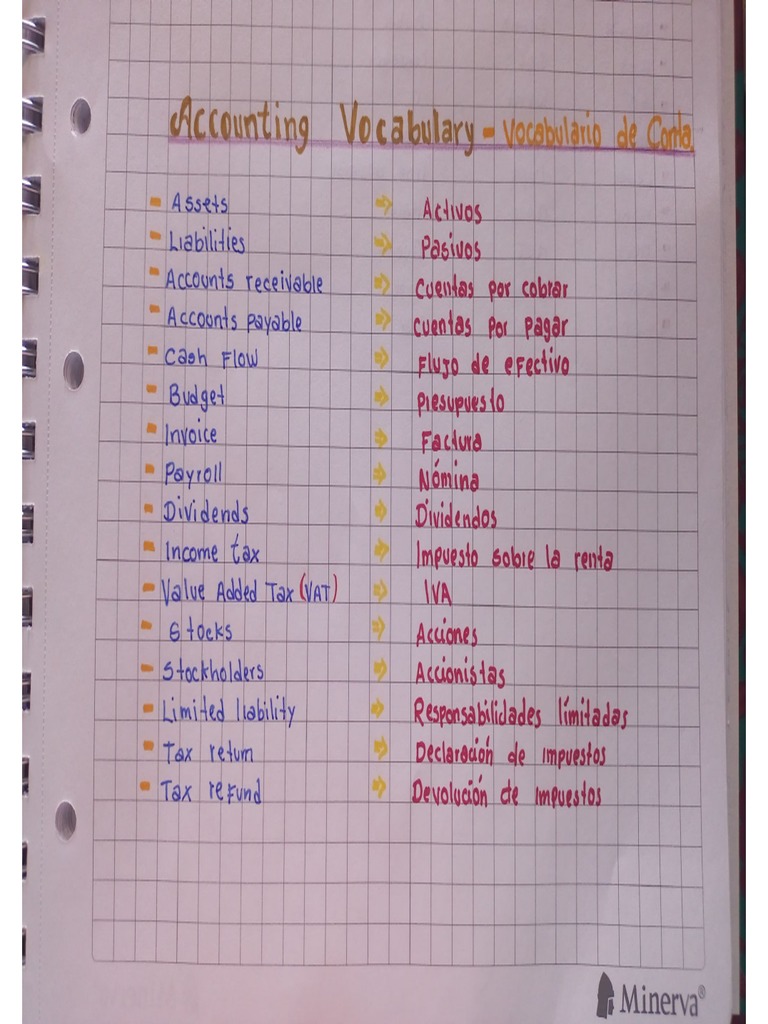 Accounting Vocabulary - Vocabulario de Conta.
- Assets ⇒ Activos
- Liabilities ⇒ Pasivos
- Accounts receivable ⇒ Cuentas por cobrar
- Accounts payable ⇒ cuentas por pagar
- Cash Flow ⇒ Flujo de efectivo
- Budget ⇒ Presupuesto
- Invoice ⇒ Factura
- Payroll ⇒ Nómina
- Dividends ⇒ Dividendos
- Income tax ⇒ Impuesto sobre la renta
- Value Added Tax (VAT) ⇒ IVA
- Stocks ⇒ Acciones
- Stockholders ⇒ Accionistas
- Limited liability ⇒ Responsabilidades límitadas
- Tax return ⇒ Declaración de impuestos
- Tax refund ⇒ Devolución de impuestos
Minerva®